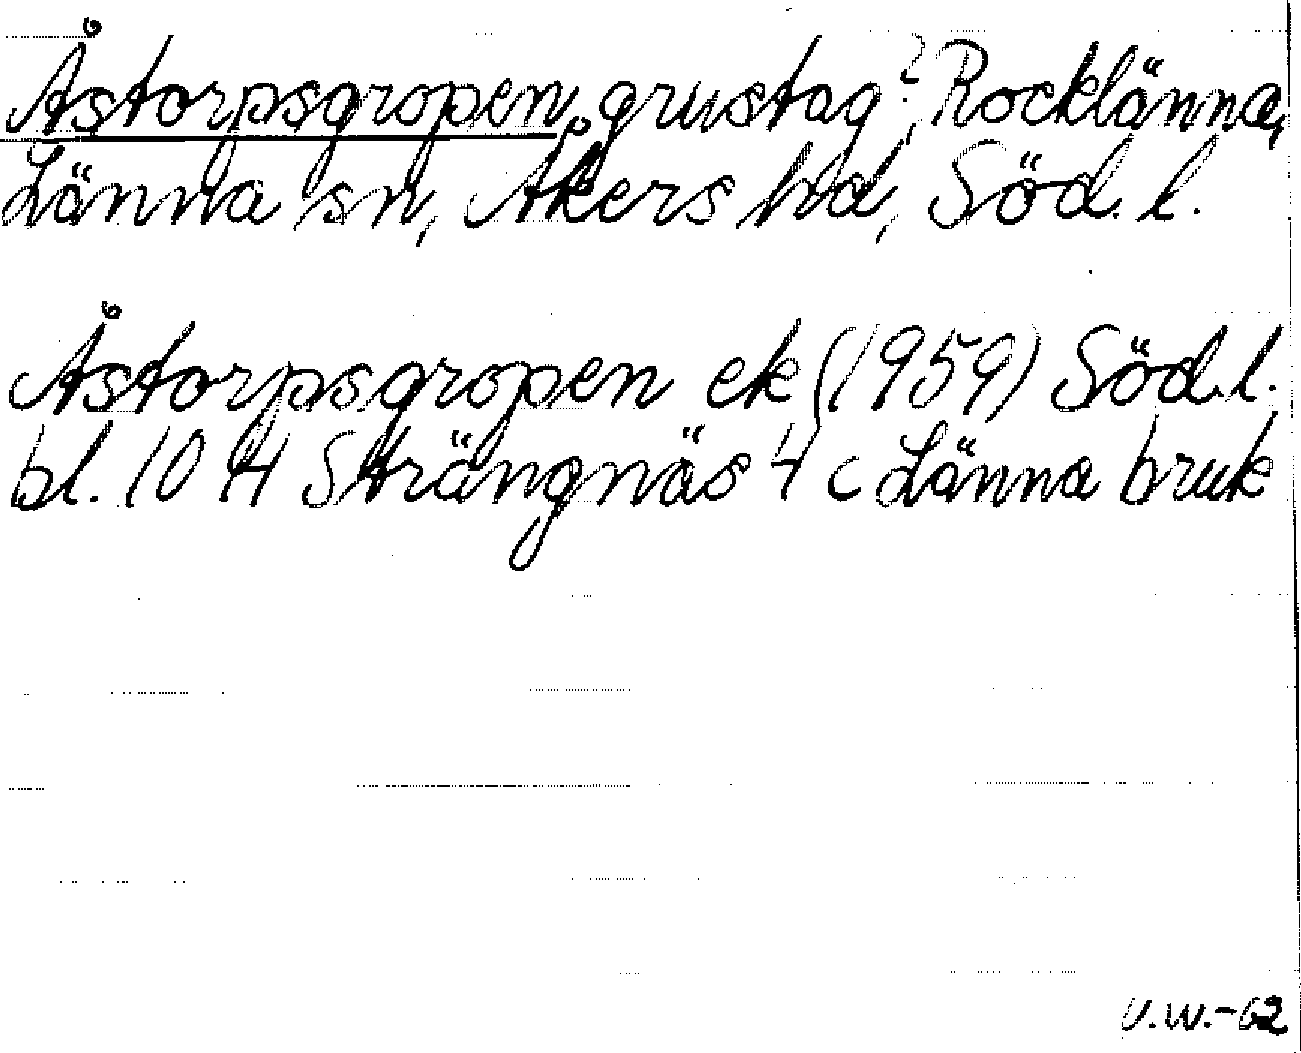 Åstorpsgropen, grustag?, Rocklänna,
Länna sn, Åkers hd, Söd. l.
Åstorpsgropen ek (1959) Söd. l.
bl. 10 H Strängnäs 4 c Länna bruk
V.W.-62